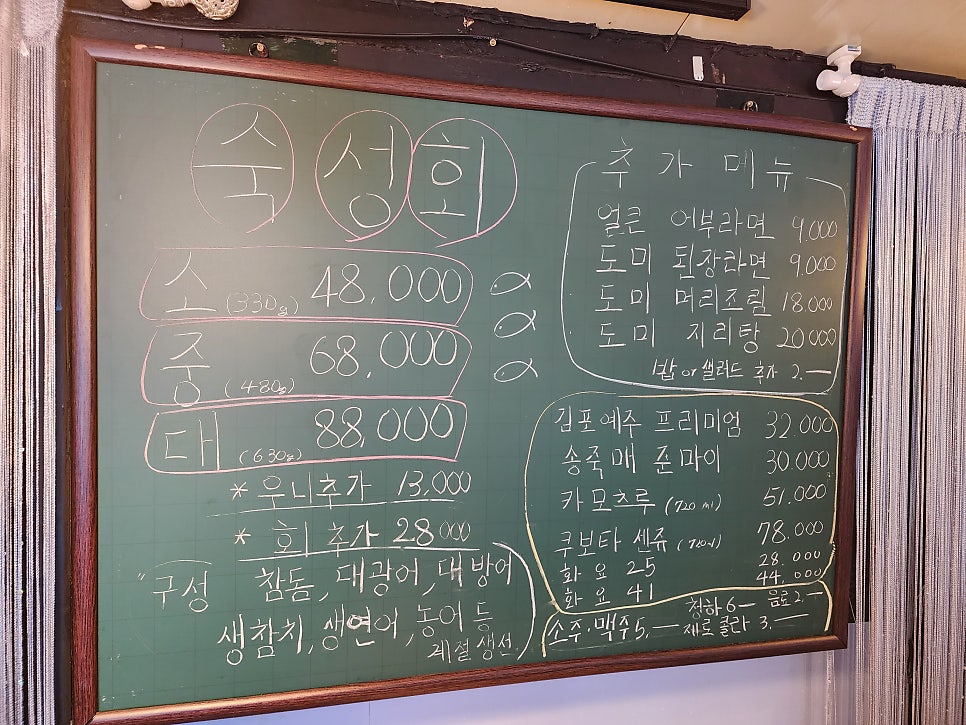 숙성회
소 (330g) 48,000
중 (480g) 68,000
대 (630g) 88,000
* 우니추가 13,000
* 회 추가 28,000
"구성 참돔, 대광어, 대방어
생참치, 생연어, 농어 등
계절생선
추가메뉴
얼큰 어부라면 9,000
도미 된장라면 9,000
도미 머리조림 18,000
도미 지리탕 20,000
1밥 or 샐러드 추가 2.—
김포예주 프리미엄 32.000
송죽매 준마이 30.000
카모츠루 (720ml) 51.000
쿠보타 센쥬 (720ml) 78.000
화요 25 28.000
화요 41 44.000
소주·맥주 5.— 청하 6— 음료 2.—
제로콜라 3.—